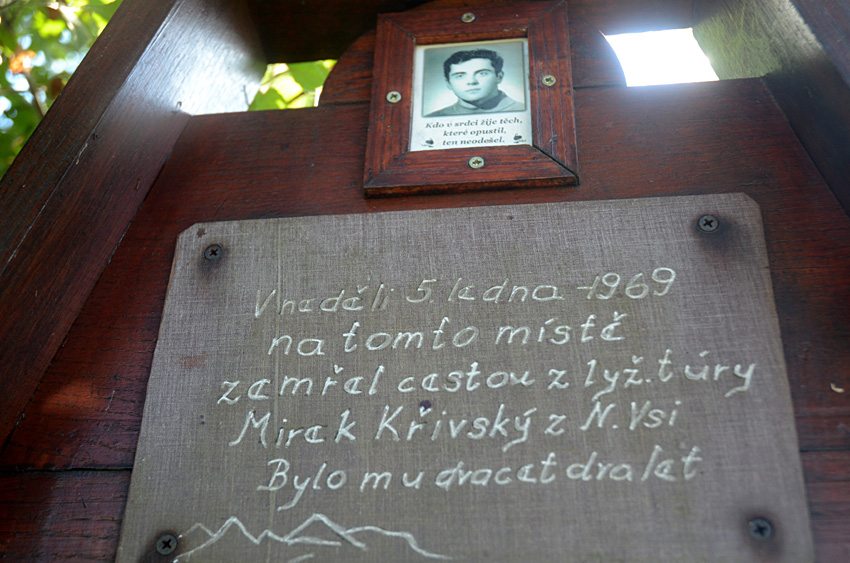 Kdo v srdci žije těch,
které opustil,
ten neodešel.
V neděli 5. ledna 1969
na tomto místě
zemřel cestou z lyž. túry
Mirek Křivský z N. Vsi
Bylo mu dvacet dva let